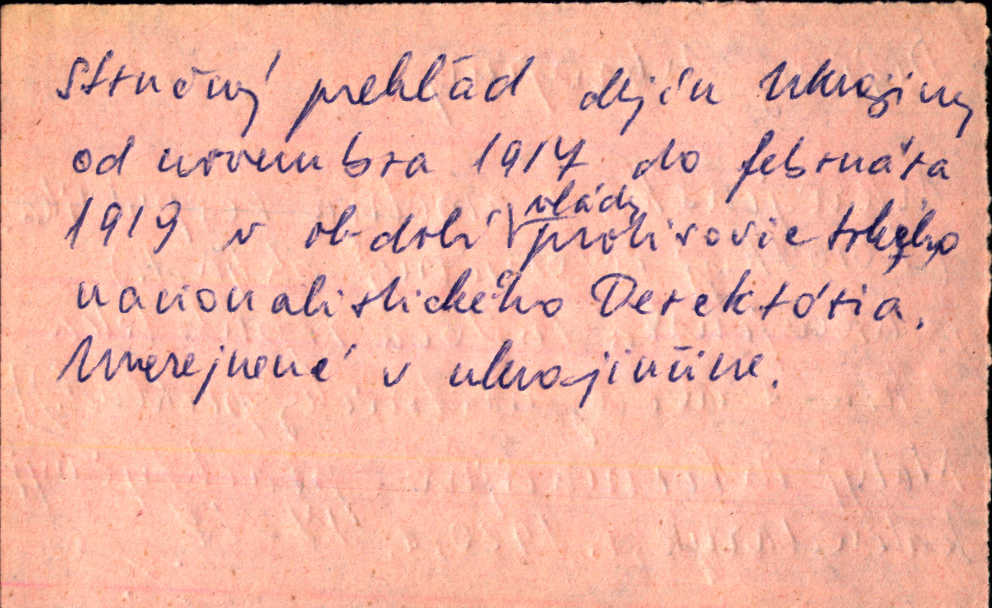 Stručný prehlad dejín Ukrajiny
od novembra 1917 do februára
1919 v období vlády protisovietskeho
nacionalistického Derektória.
Uverejnené v ukrajinčine.